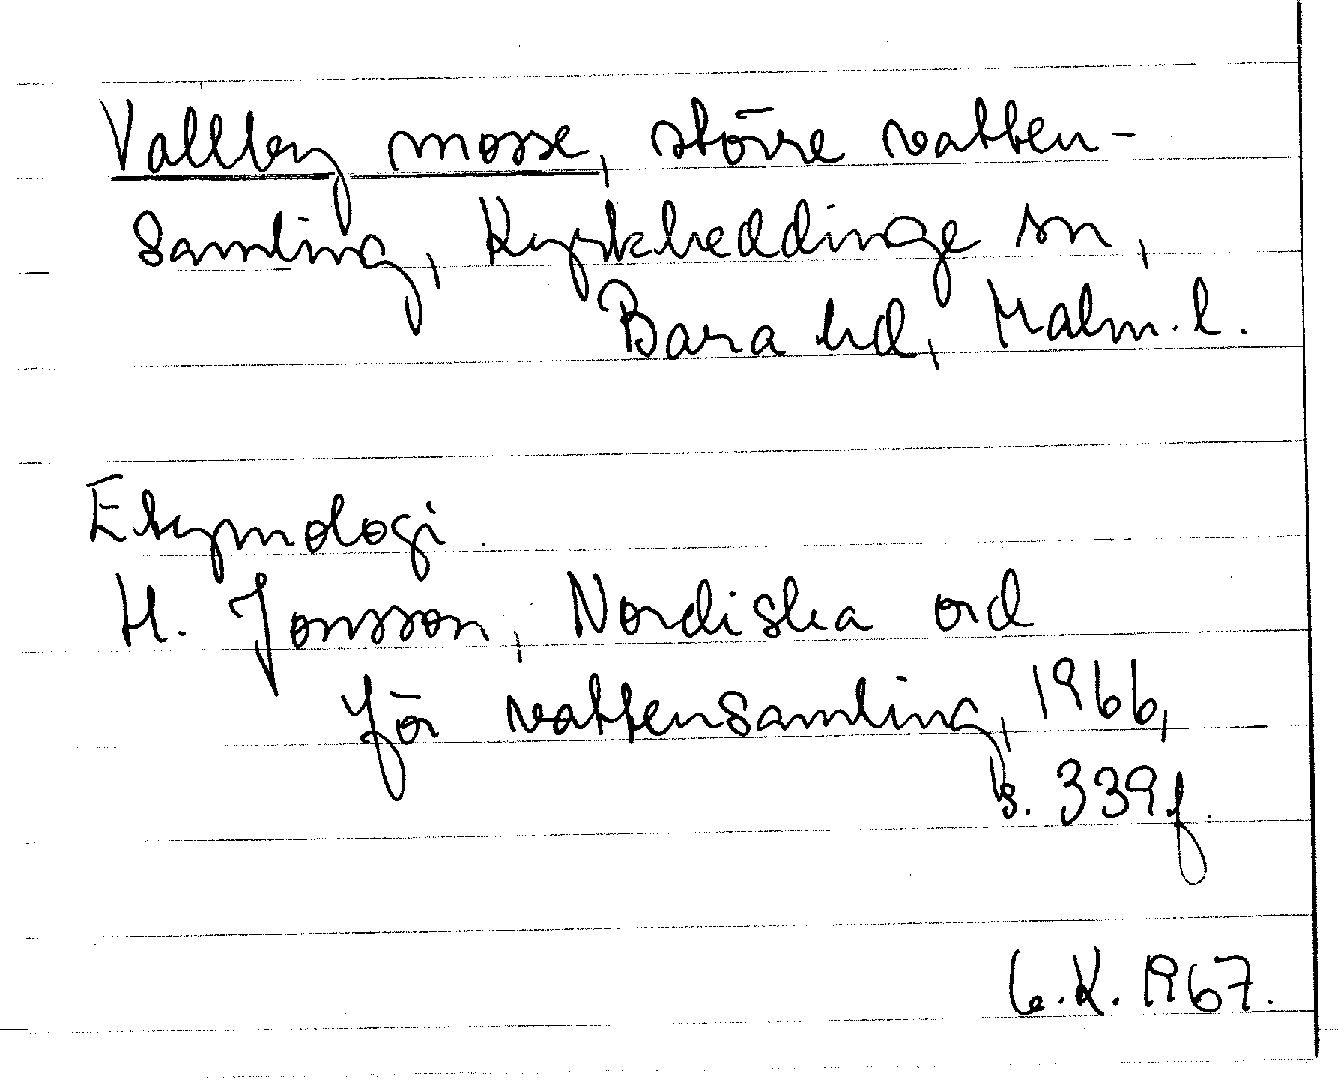 Vallby mosse, större vatten-
samling, Kyrkheddinge sn,
Bara hd, Malm. l.
Etymologi.
H. Jonsson, Nordiska ord
för vattensamling, 1966,
s. 339f.
G.K. 1967.